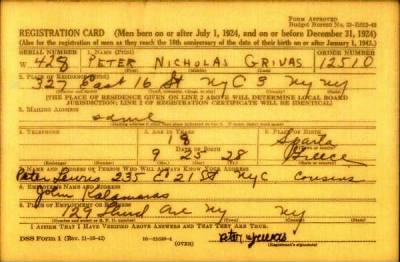 Form Approved
REGISTRATION CARD (Men born on or after July 1, 1924, and on or before December 31, 1924)
(Also for the registration of men as they reach the 18th anniversary of the date of their birth on or after January 1, 1943.)
SERIAL NUMBER 1. NAME (Print) ORDER NUMBER
W 428 PETER NICHOLAS GRIVAS 12510
(First) (Middle) (Last)
2. PLACE OF RESIDENCE (Print)
327 East 16 St NYC 3 NY NY
(THE PLACE OF RESIDENCE GIVEN ON LINE 2 ABOVE WILL DETERMINE LOCAL BOARD
JURISDICTION; LINE 2 OF REGISTRATION CERTIFICATE WILL BE IDENTICAL)
3. MAILING ADDRESS
same
4. TELEPHONE 5. AGE IN YEARS 6. PLACE OF BIRTH
Sparta
DATE OF BIRTH
9 25 28 Greece
7. NAME AND ADDRESS OF PERSON WHO WILL ALWAYS KNOW YOUR ADDRESS
Peter 235 E 21 St NYC Cousins
8. EMPLOYER'S NAME AND ADDRESS
John Kalamaras
9. PLACE OF EMPLOYMENT OR BUSINESS
129 Third Ave NY NY
I AFFIRM THAT I HAVE VERIFIED ABOVE ANSWERS AND THAT THEY ARE TRUE.
DSS Form 1 (Rev. 11-16-42) (OVER) Peter Grivas
(Registrant's signature)